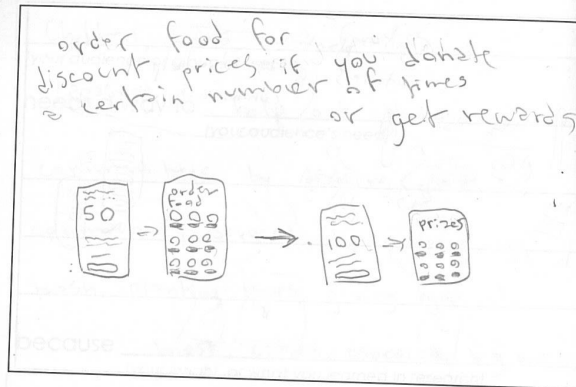 order food for
discount prices if you donate
a certain number of times
or get rewards
order
food
50
100
prizes
because